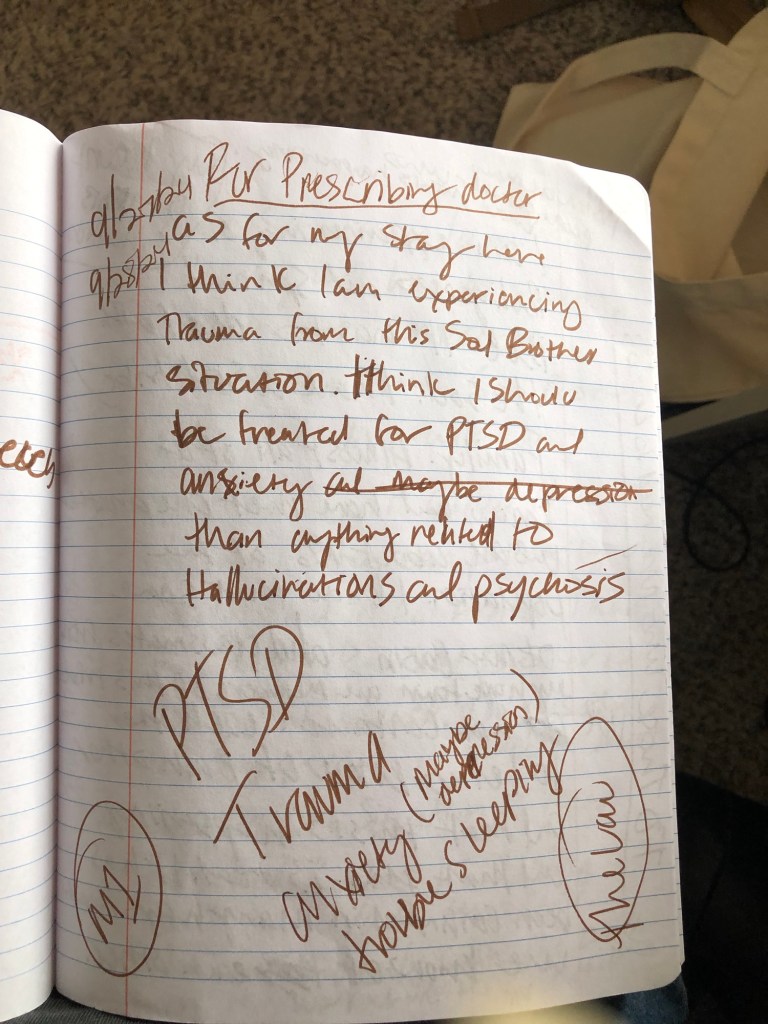 9/27/24 For Prescribing doctor
9/28/24 as for my stay here
I think I am experiencing
Trauma from this Sal Brother
situation. I think I should
be treated for PTSD and
anxiety and maybe depression
than anything related to
Hallucinations and psychosis
PTSD
Trauma
anxiety (Maybe depression)
trouble sleeping
the law